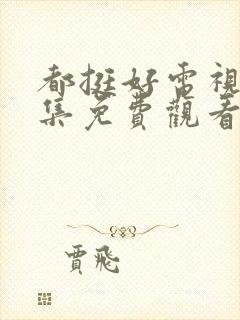 都挺好電視
集免費觀看
賈飛